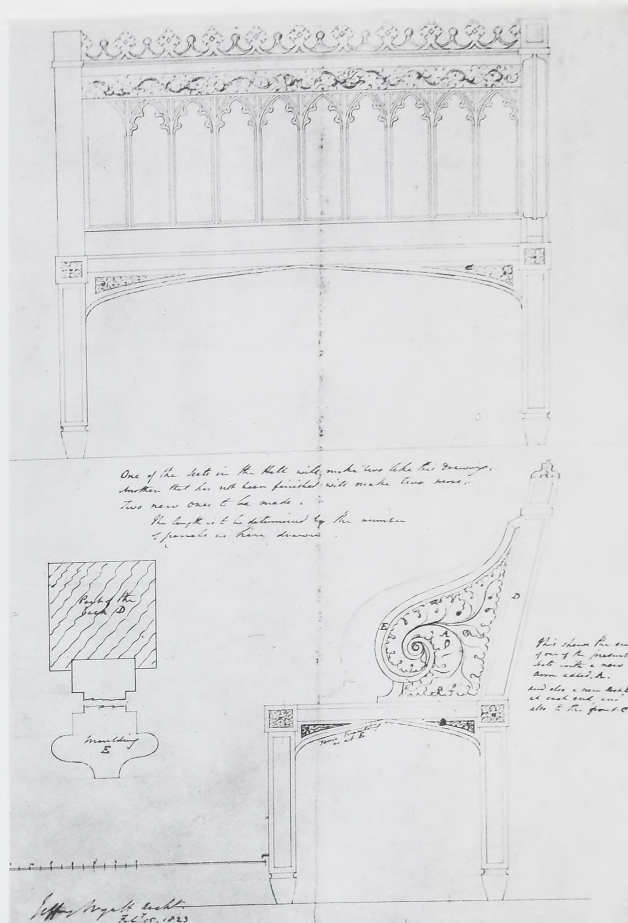 One of the seats in the Hall will make two like this Drawing,
Another that has not been finished will make two more.
Two new ones to be made.
The length is to be determined by the number
of pannels as here drawn
Part of the
back D
moulding
E
E
A
D
This shows the
of one of the present
seats with a new
Arm added, A.
and also a new
at each end, and
also to the front
Jeffry Wyatt Archt.
Feby. 15. 1823